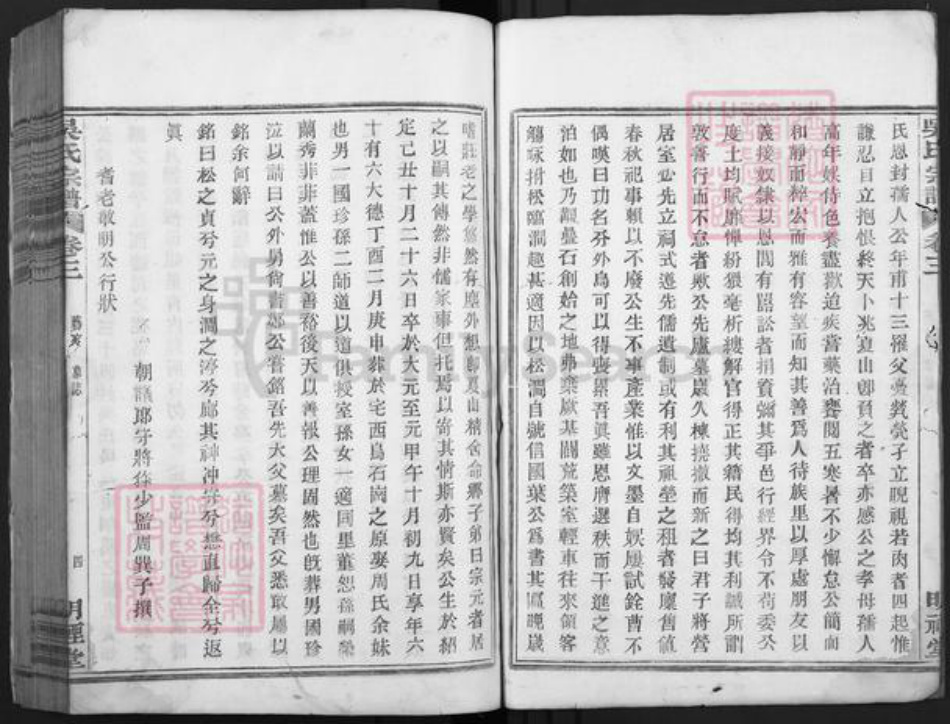 氏恩封孺人公年甫十三罹父憂煢煢孑立睨視若肉者四起惟
謙忍自立抱恨終天卜兆夏山卽負之者卒亦感公之孝母孺人
高年娛侍色養盡歡迨疾嘗藥治饔閱五寒暑不少懈怠公簡而
和靜而粹宏而雅有容望而知其善爲人待族里以厚處朋友以
義接奴隷以恩閭有嚚訟者捐資彌其爭邑行經界令不苟委公
度土均賦靡憚紛猥毫析縷解官得正其籍民得均其利誠所謂
敦善行而不怠者歟公先廬墓歲久棟撓撤而新之曰君子將營
居室必先立祠式遵先儒遺制或有利其祖塋之租者發廩售値
春秋祀事賴以不廢公生不事產業惟以文墨自娛屢試銓曹不
偶嘆曰功名外外鳥可以得喪累吾眞雖恩膺選秩而干進之意
泊如也乃觀疊石創始之地弗棄厥基闢荒築室輕車往來領客
觴咏捎松臨澗趣甚適因以松澗自號信國葉公爲書其匾晚歲
嗜莊老之學悠然有塵外想卽夏山精舍命鄉子弟日宗元者居
之以嗣其傳然非儒家事但托焉以寄其情斯亦賢矣公生於紹
定己丑十月二十六日卒於大元至元甲午十月初九日享年六
十有六大德丁酉二月庚申葬於宅西烏石崗之原娶周氏余妹
也男一國珍孫二師道以道俱授室孫女一適同里董恕孫嗣榮
蘭秀菲菲蓋惟公以善裕後天以善報公理固然也旣葬男國珍
泣以請曰公外舅尙書鄭公嘗銘吾先大父墓矣吾父悉敢屬以
銘余何辭
銘曰松之貞兮元之身澗之渟兮廊其神冲兮兮懋直歸全兮返
眞
耆老敢朝公行狀
朝請郎守將作少監周巽子撰
吳氏宗譜
卷三
墓誌
四
明禋堂
吳氏宗譜
卷三
明禋堂
FamilySearch